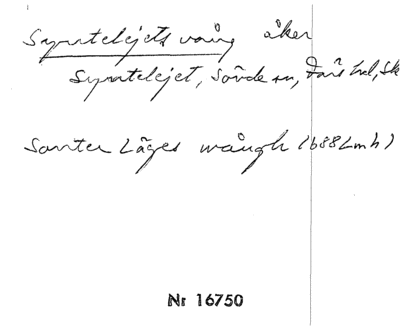 Syretelejets vång åker
Syretelejet, Sövde sn, Färs hd, Sk
Sönter Läges wångh (1688 Lmh)
Nr 16750